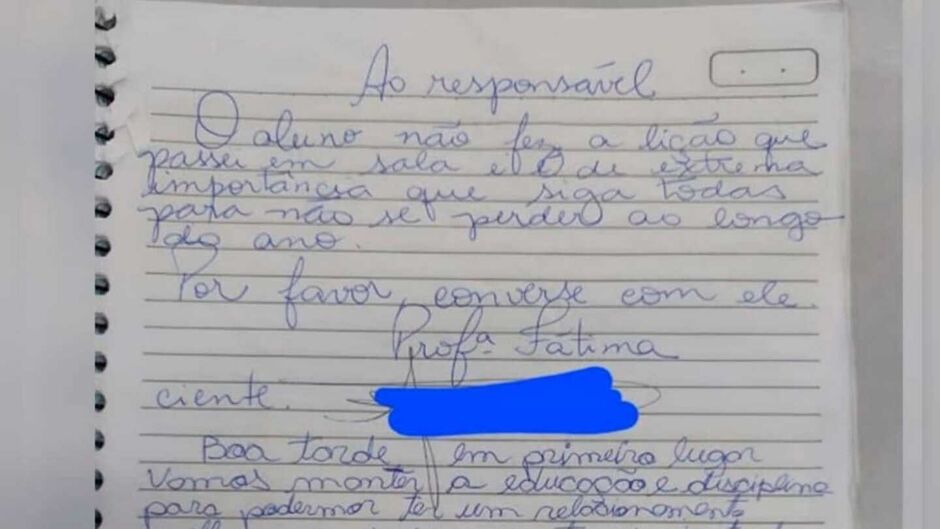 Ao responsável
O aluno não fez a lição que
passei em sala e é de extrema
importância que siga todas
para não se perder ao longo
do ano.
Por favor, converse com ele.
Profª Fátima
ciente.
Boa tarde, em primeiro lugar
Vamos manter a educação e disciplina
para podermor ter um relacionamento